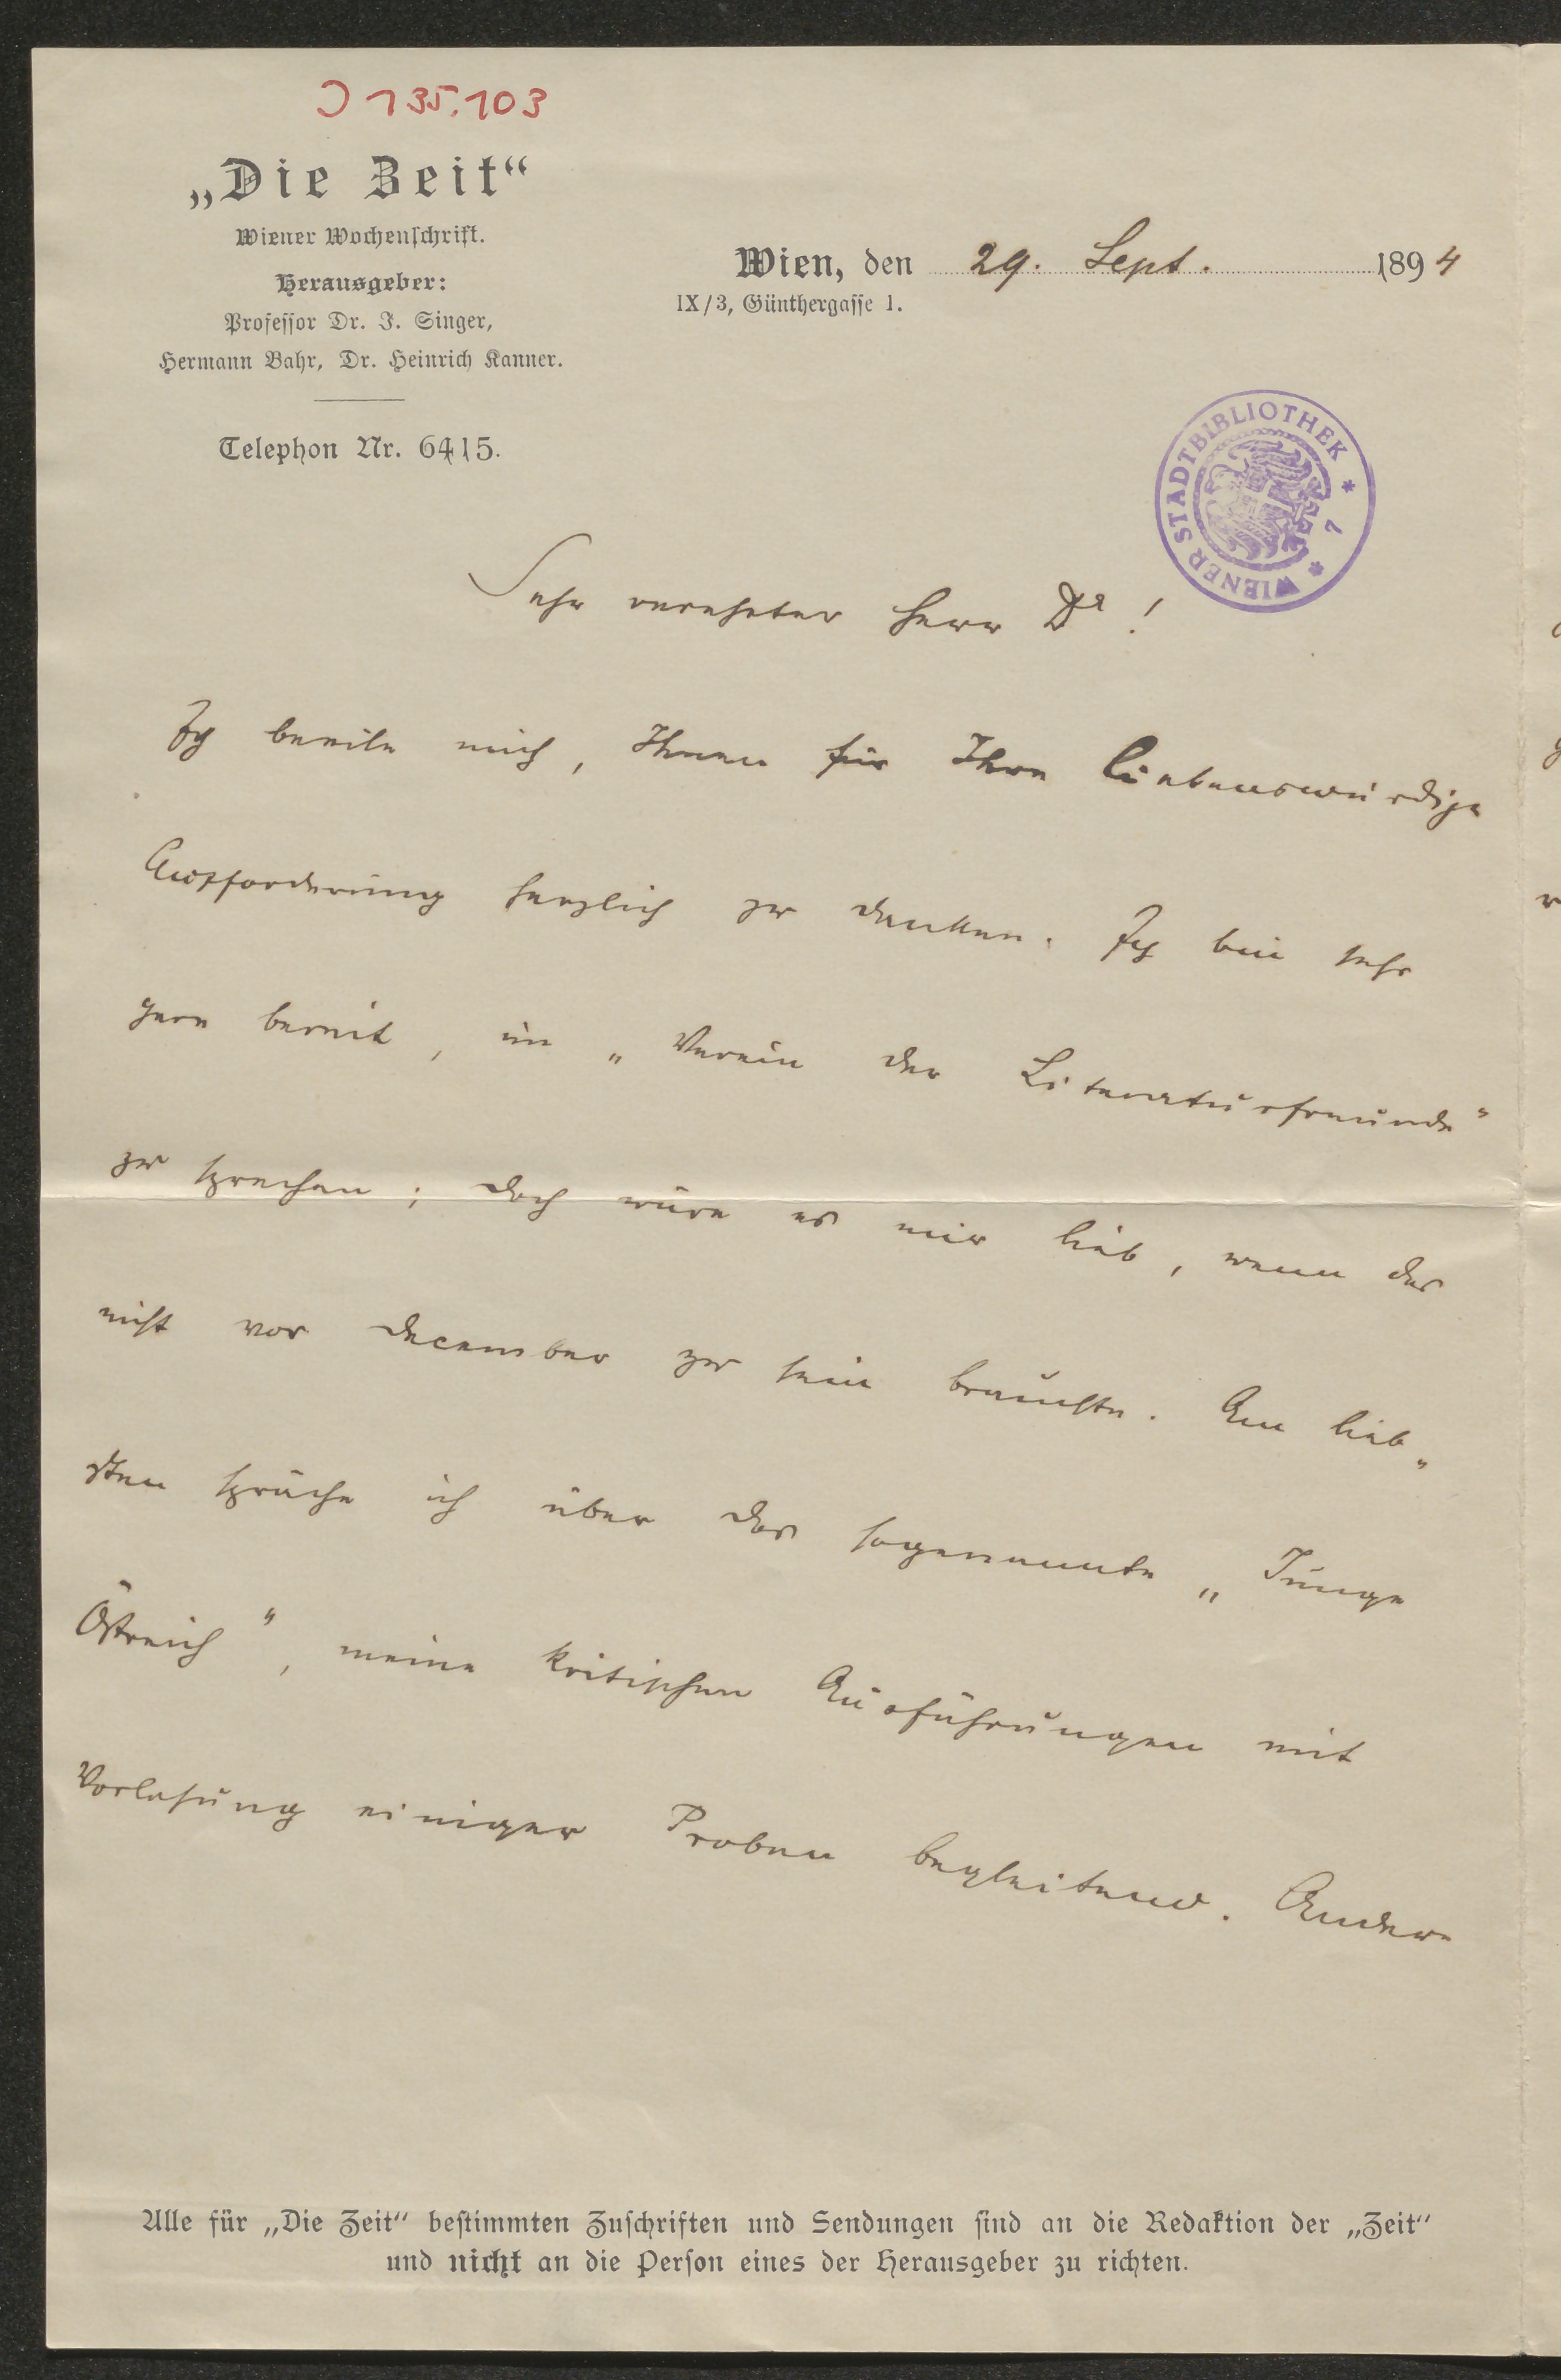 J 135.103
„Die Zeit“
Wiener Wochenschrift.
Herausgeber:
Professor Dr. J. Singer,
Hermann Bahr, Dr. Heinrich Kanner.
Telephon Nr. 6415.
Wien, den 29. Sept. 1894
IX/3, Günthergasse 1.
WIENER STADTBIBLIOTHEK * 7 *
Sehr verehrter Herr Dr!
Ich beeile mich, Ihnen für Ihre liebenswürdige
Aufforderung herzlich zu danken. Ich bin sehr
gern bereit, im „Verein der Literaturfreunde“
zu sprechen; doch wäre es mir lieb, wenn das
nicht vor December zu sein brauchte. Am lieb„
sten spräche ich über das sogenannte „Junge
Östreich“, meine kritischen Ausführungen mit
Vorlesung einiger Proben begleitend. Andere
Alle für „Die Zeit“ bestimmten Zuschriften und Sendungen sind an die Redaktion der „Zeit“
und nicht an die Person eines der Herausgeber zu richten.